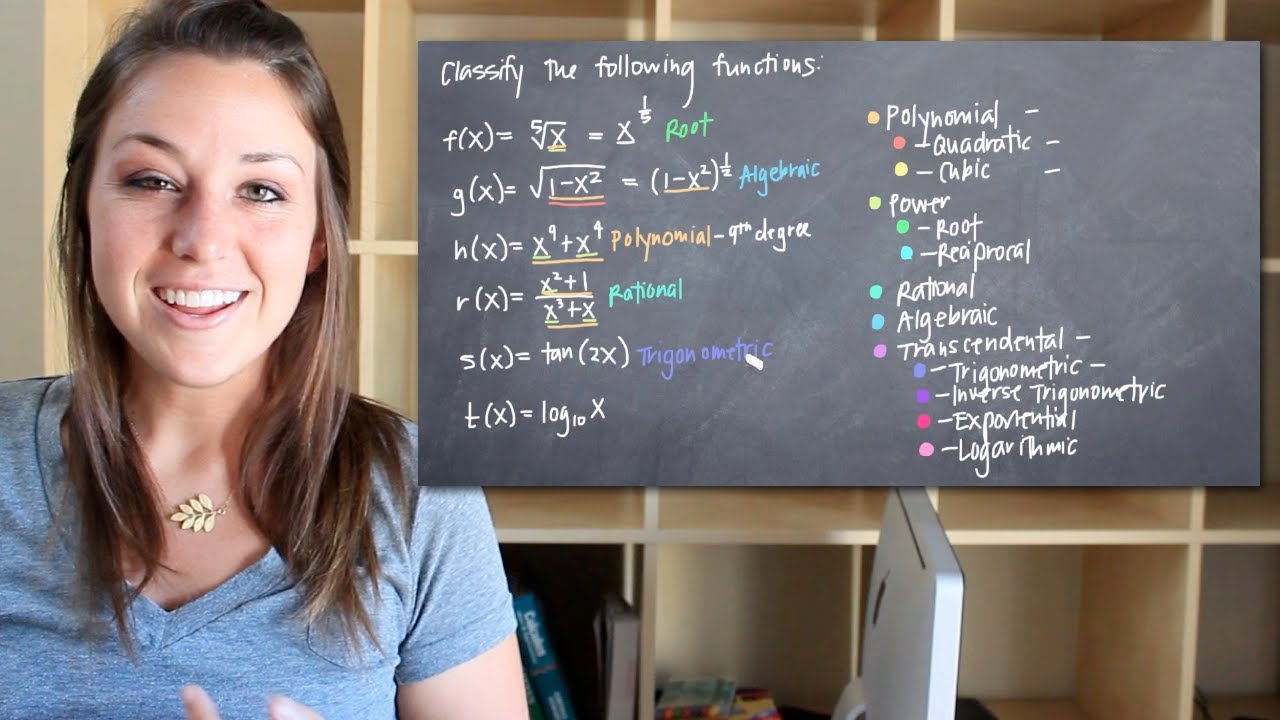 Classify the following functions:
f(x) = ⁵√x = x^(1/5) Root
g(x) = √(1-x²) = (1-x²)^(1/2) Algebraic
h(x) = x⁹+x⁴ Polynomial - 9th degree
r(x) = (x²+1)/(x³+x) Rational
s(x) = tan(2x) Trigonometric
t(x) = log₁₀ x
Polynomial -
- Quadratic -
- Cubic -
Power
- Root
- Reciprocal
Rational
Algebraic
Transcendental -
- Trigonometric -
- Inverse Trigonometric
- Exponential
- Logarithmic
Calculus